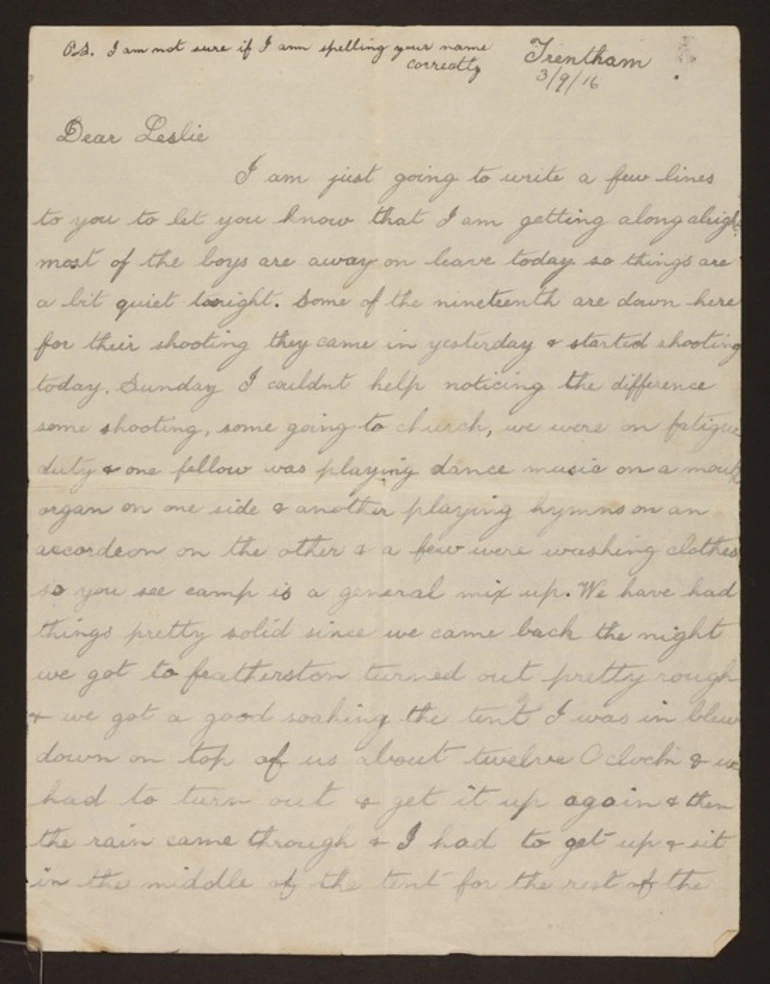 P.S. I am not sure if I am spelling your name
correctly
Trentham
3/9/16
Dear Leslie
I am just going to write a few lines
to you to let you know that I am getting along alright
most of the boys are away on leave today so things are
a bit quiet tonight. Some of the nineteenth are down here
for their shooting they came in yesterday & started shooting
today. Sunday I couldnt help noticing the difference
some shooting, some going to church, we were on fatigue
duty & one fellow was playing dance music on a mouth
organ on one side & another playing hymns on an
accordeon on the other & a few were washing clothes
so you see camp is a general mix up. We have had
things pretty solid since we came back the night
we got to featherston turned out pretty rough
& we got a good soaking the tent I was in blew
down on top of us about twelve O clock & we
had to turn out & get it up again & then
the rain came through & I had to get up & sit
in the middle of the tent for the rest of the